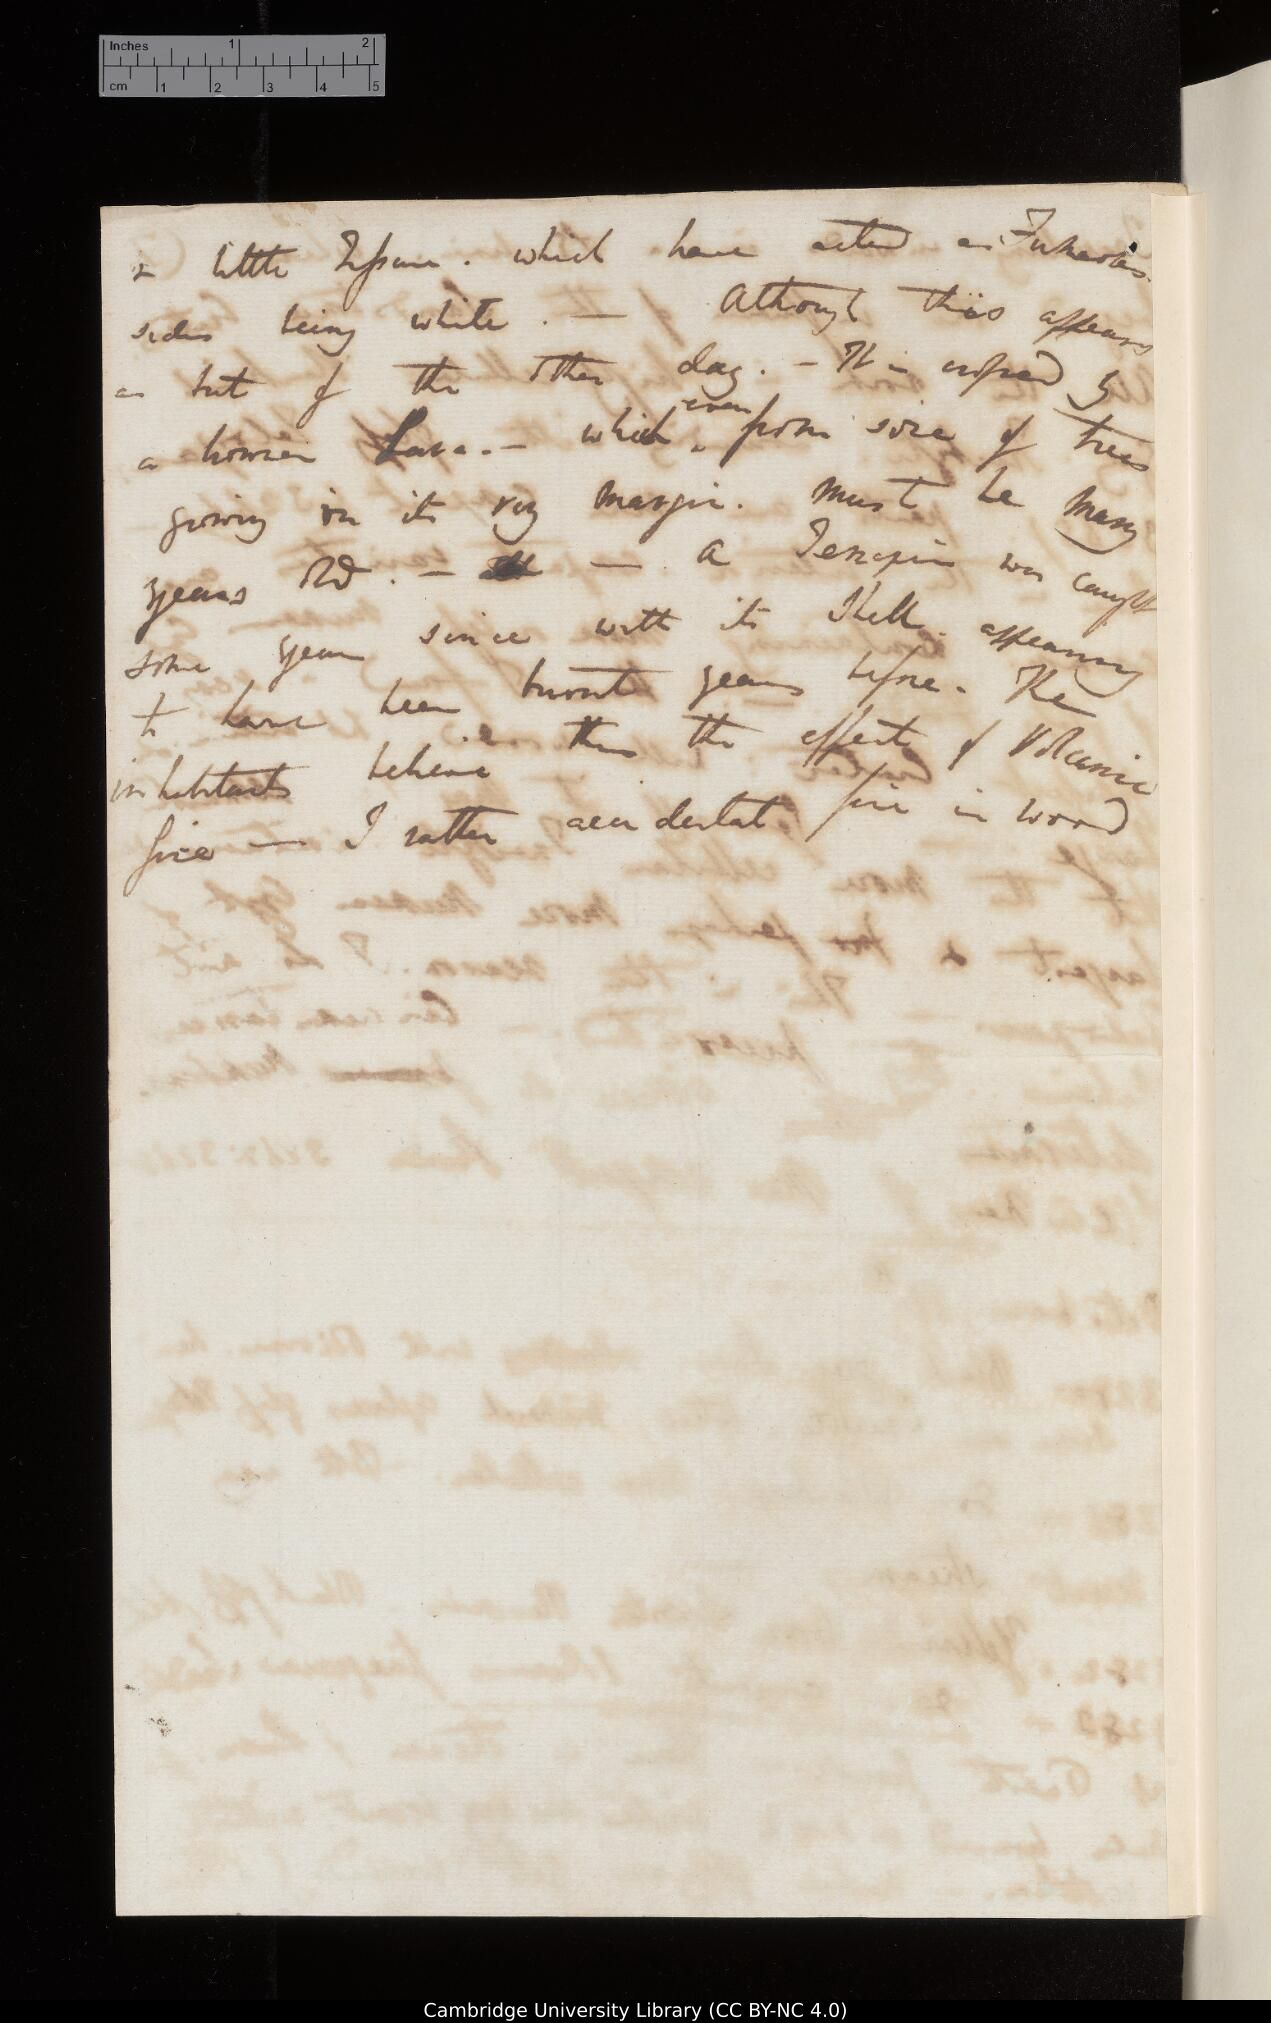 Inches 1 2
cm 1 2 3 4 5
little fissure. which have acted as Fumaroles.
sides being white. — Although this appears
as but of the other day. — It is crossed by
a browner Lava. — which even from size of trees
growing on its very margin. must be many
years old. — — A Terrapin was caught
some years since with its Shell. appearing
to have been burnt years before. The
inhabitants believe this the effects of Volcanic
fire — I rather accidental fire in wood
Cambridge University Library (CC BY-NC 4.0)